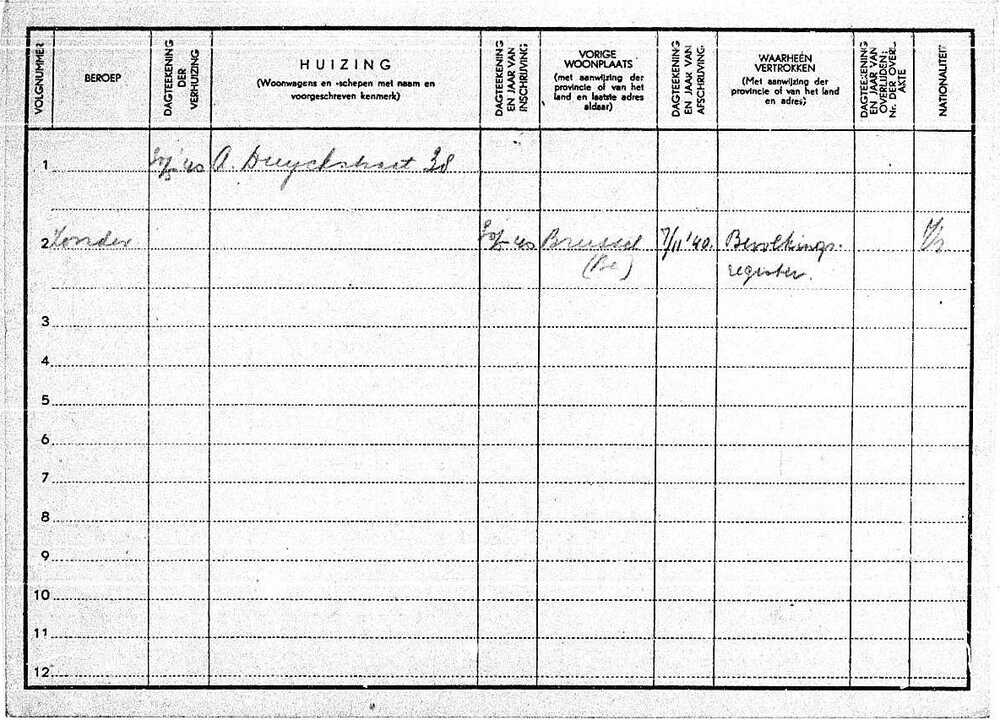 VOLGNUMMER
BEROEP
DAGTEEKENING
DER
VERHUIZING
HUIZING
(Woonwagens en -schepen met naam en
voorgeschreven kenmerk)
DAGTEEKENING
EN JAAR VAN
INSCHRIJVING
VORIGE
WOONPLAATS
(met aanwijzing der
provincie of van het
land en laatste adres
aldaar)
DAGTEEKENING
EN JAAR VAN
AFSCHRIJVING.
WAARHEEN
VERTROKKEN
(Met aanwijzing der
provincie of van het land
en adres)
DAGTEEKENING
EN JAAR VAN
OVERLIJDEN:
Nr. DER OVERL.
AKTE
NATIONALITEIT
1 '40 A. Duyckstraat 38
2 Zonder Brussel 7/11 '40. Bevolkings-
(Be) register.
3
4
5
6
7
8
9
10
11
12